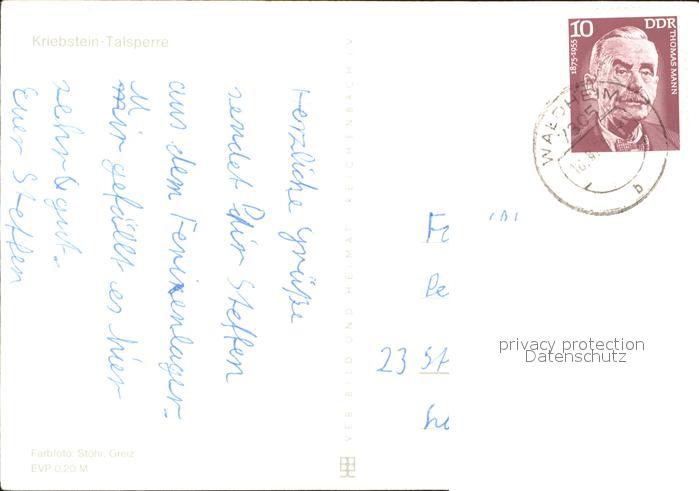 Kriebstein-Talsperre
Herzliche Grüße
sendet Dir Steffen
aus dem Ferienlager.
Mir gefällt es hier
sehr gut.
Euer Steffen
Farbfoto: Stöhr, Greiz
EVP 0,20 M
VEB BILD UND HEIMAT REICHENBACH I. V.
10
DDR
1875-1955
THOMAS MANN
WALDHEIM
7305
b
23 St
privacy protection
Datenschutz